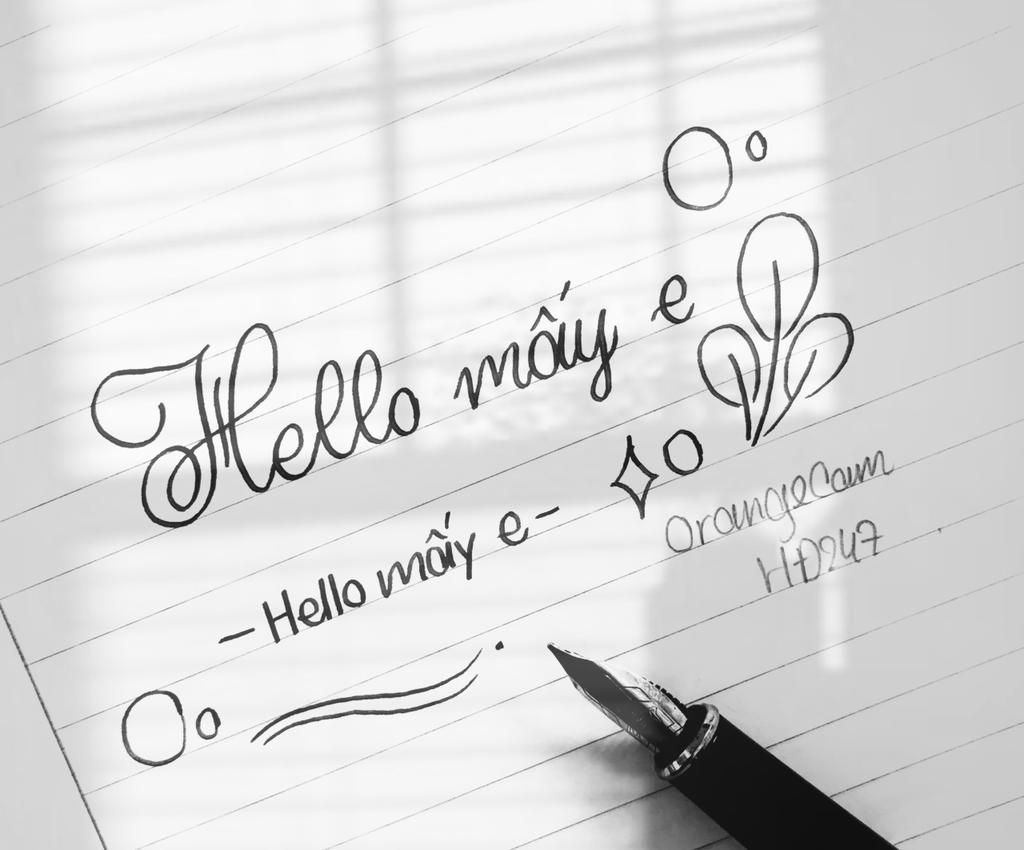 Hello mấy e
-Hello mấy e-
OrangeCam
HĐ247